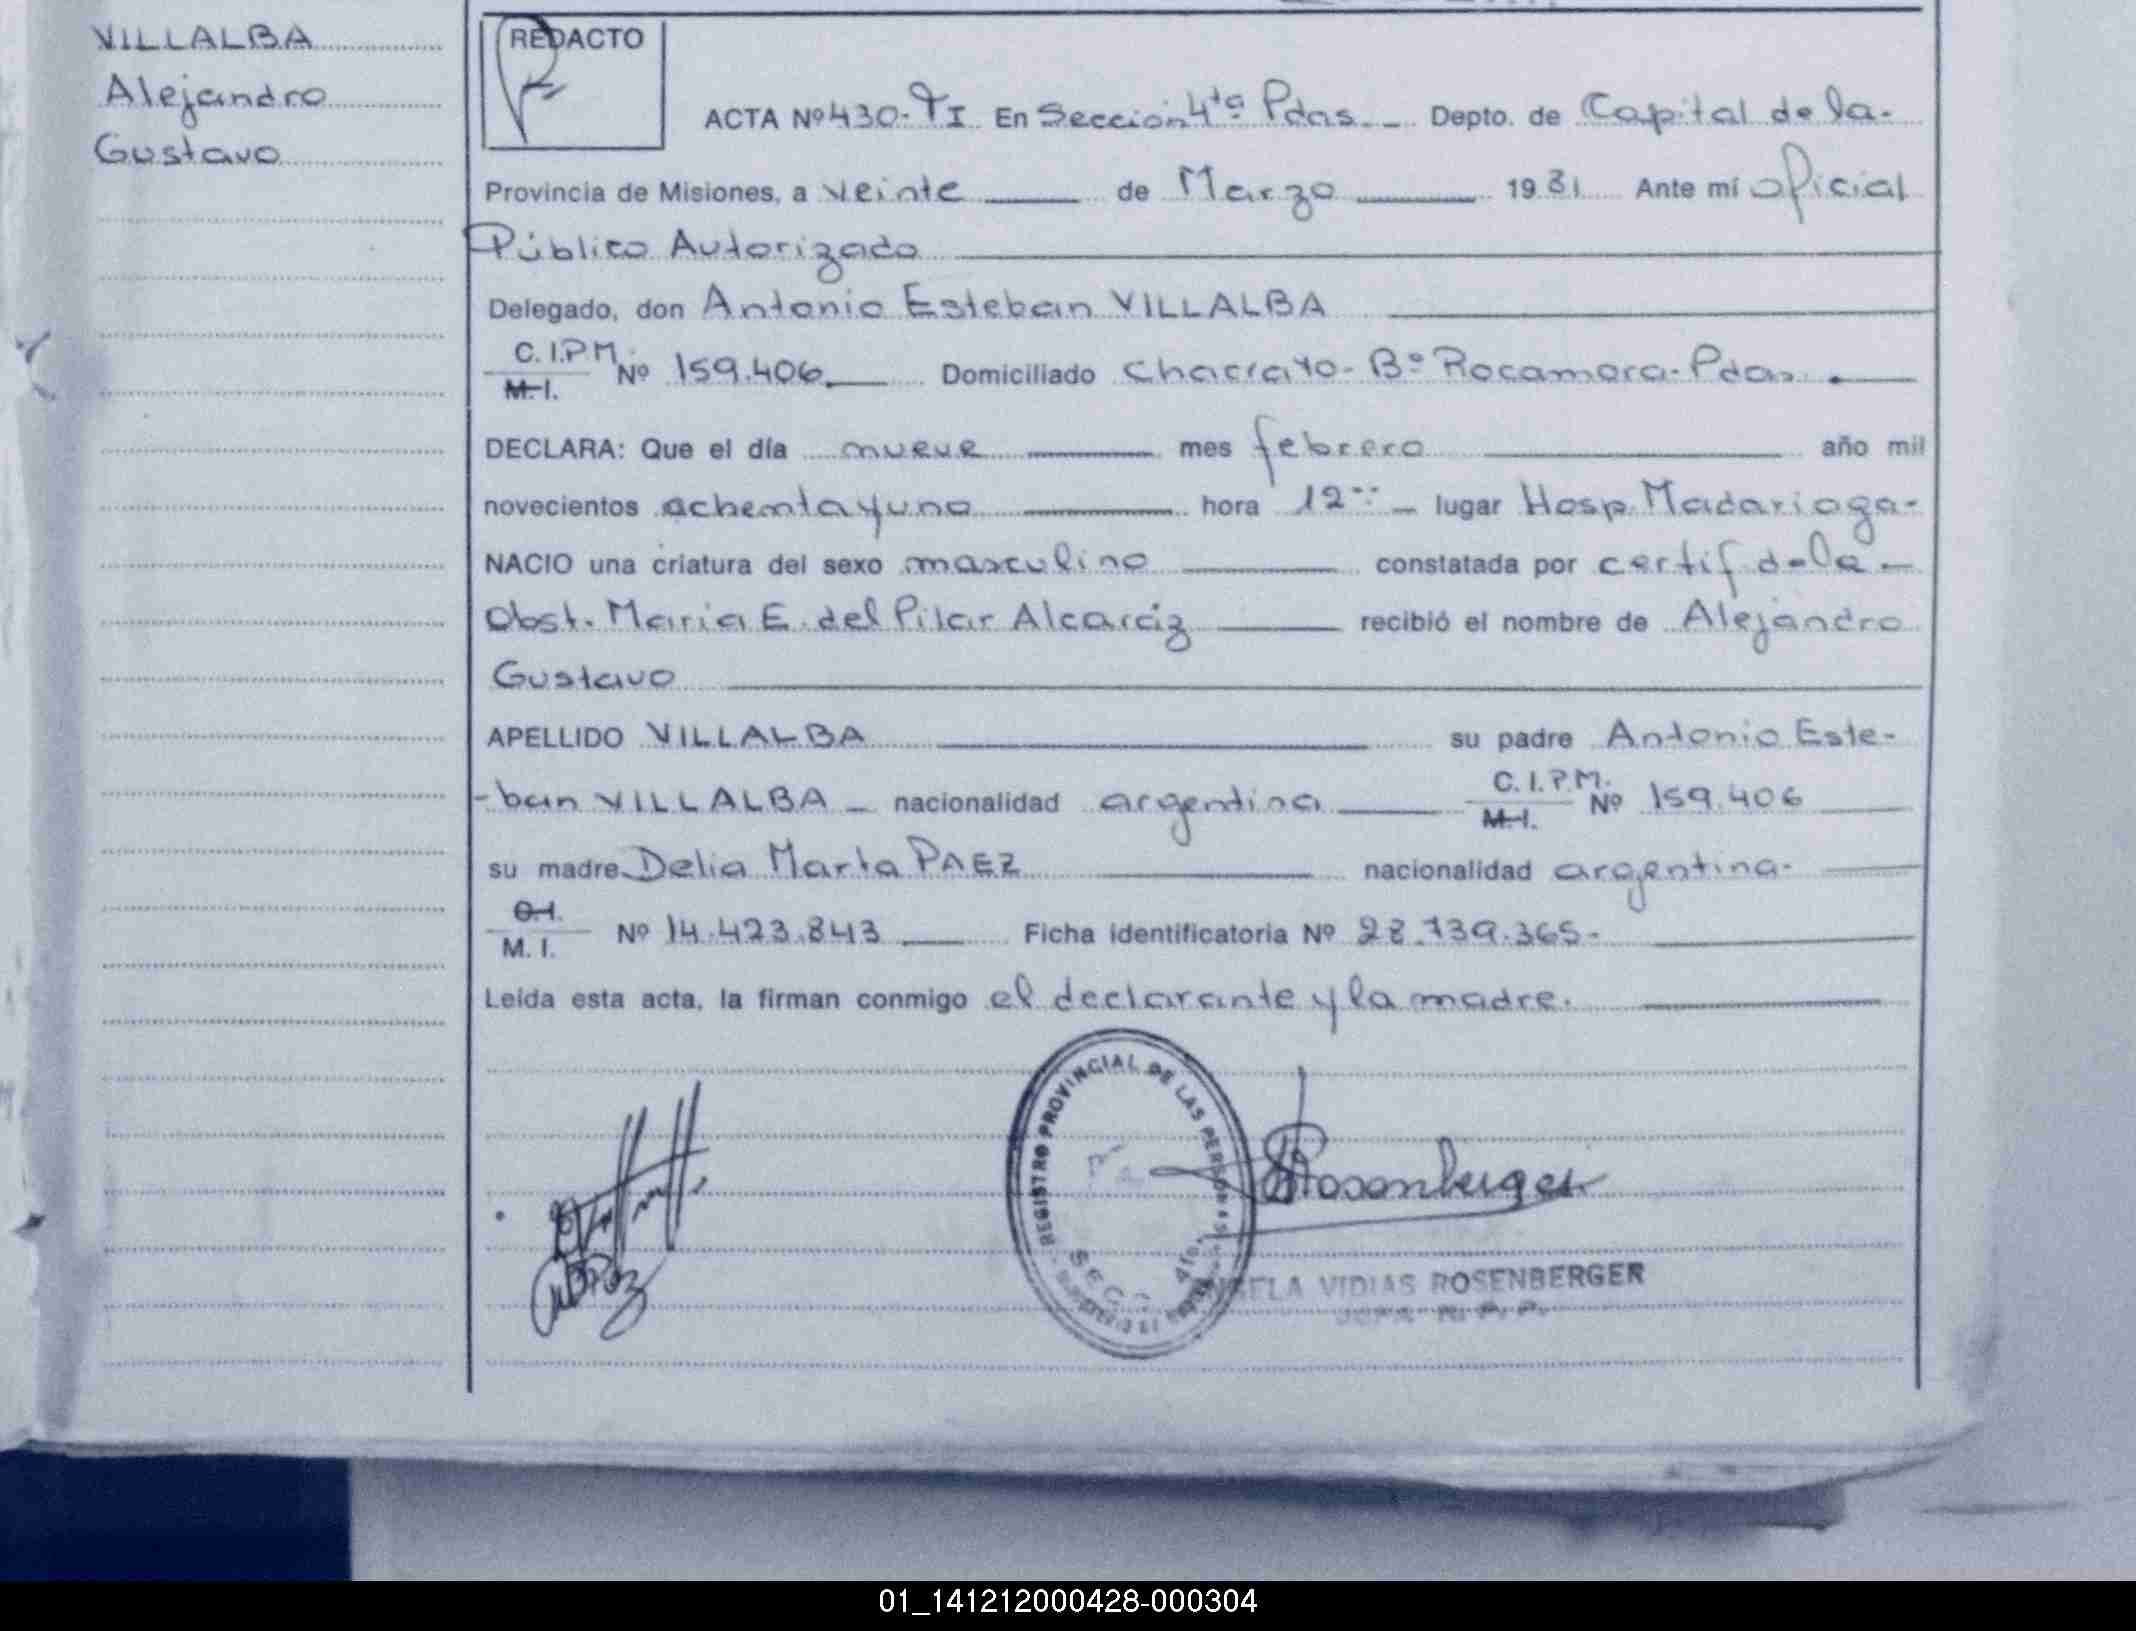 VILLALBA
Alejandro
Gustavo
REDACTO
ACTA Nº 430-TI En Sección 4ta Pdas. Depto. de Capital de la
Provincia de Misiones, a veinte de Marzo 1981 Ante mí oficial
Público Autorizado
Delegado, don Antonio Esteban VILLALBA
C.I.P.M.
M.I. Nº 159.406 Domiciliado Bº Rocamora-Pdas.
DECLARA: Que el día nueve mes febrero año mil
novecientos ochenta y uno hora 12 lugar Hosp. Madariaga-
NACIO una criatura del sexo masculino constatada por certif. d-la
Obst. María E. del Pilar Alcaráz recibió el nombre de Alejandro
Gustavo
APELLIDO VILLALBA su padre Antonio Este-
-ban VILLALBA nacionalidad argentina C.I.P.M.
M.I. Nº 159.406
su madre Delia Marta PAEZ nacionalidad argentina-
M. I. Nº 14.423.843 Ficha identificatoria Nº 28.739.365-
Leída esta acta, la firman conmigo el declarante y la madre.
REGISTRO PROVINCIAL DE LAS PERSONAS
SECC. 4ta.
Rosenberger
VIDIAS ROSENBERGER
01_141212000428-000304